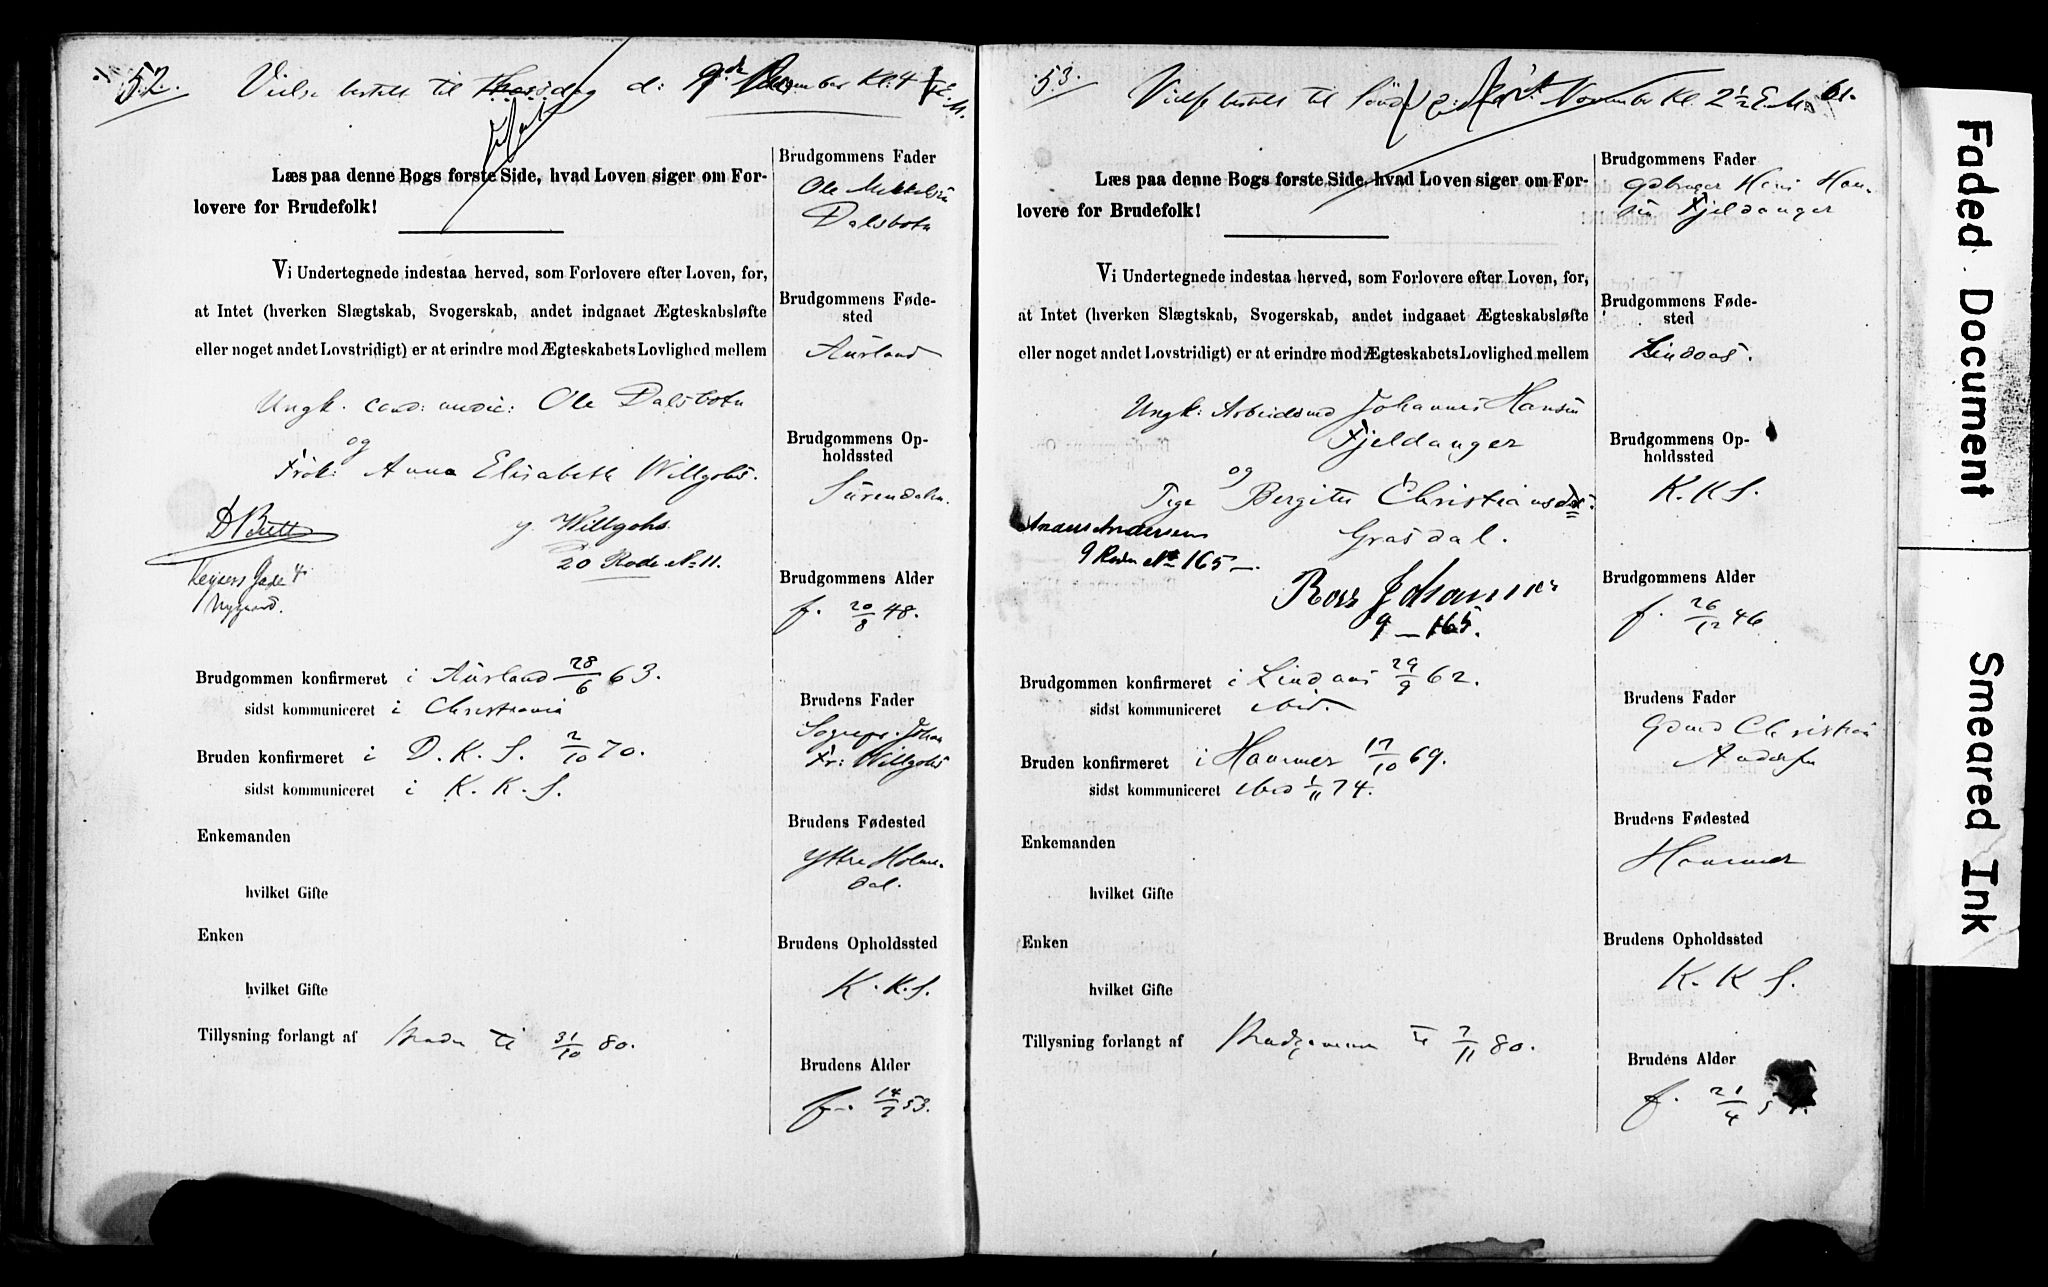 52.
Vielse bestilt til Thorsdag d: 9de December Kl: 4 E.M.
viet
Læs paa denne Bogs første Side, hvad Loven siger om For-
lovere for Brudefolk!
Vi Undertegnede indestaa herved, som Forlovere efter Loven, for,
at Intet (hverken Slægtskab, Svogerskab, andet indgaaet Ægteskabsløfte
eller noget andet Lovstridigt) er at erindre mod Ægteskabets Lovlighed mellem
Ungk. cand: medic: Ole Dalsbotn
og
Frök: Anna Elisabeth Willgohs.
J. Willgohs
20 Rode No 11.
Nygaard.
Brudgommen konfirmeret i Aurland 28/6 63.
sidst kommuniceret i Christiania
Bruden konfirmeret i D. K. S. 2/10 70.
sidst kommuniceret i K. K. S.
Enkemanden
hvilket Gifte
Enken
hvilket Gifte
Tillysning forlangt af Bruden til 31/10 80.
Brudgommens Fader
Ole Mikkelsen
Dalsbotn
BrudgommensFøde-
sted
Aurland
Brudgommens Op-
holdssted
Surendalen.
Brudgommens Alder
f. 20/8 48.
Brudens Fader
Sognepr. Johan
Fr: Willgohs
Brudens Fødested
Yttre Holme-
dal.
Brudens Opholdssted
K. K. S.
Brudens Alder
f. 14/7 53.
53.
61.
Vielse bestilt til November Kl. 2 1/2 E.M.
Læs paa denne Bogs første Side, hvad Loven siger om For-
lovere for Brudefolk!
Vi Undertegnede indestaa herved, som Forlovere efter Loven, for,
at Intet (hverken Slægtskab, Svogerskab, andet indgaaet Ægteskabsløfte
eller noget andet Lovstridigt) er at erindre mod Ægteskabets Lovlighed mellem
Ungk: Arbeidsmd Johannes Hansen
Fjeldanger
og
Pige Bergitte Christiansdr.
Grasdal.
Anders Andersen
9 Roden No 165
Johannes
9 — 165.
Brudgommen konfirmeret i Lindaas 29/9 62.
sidst kommuniceret ibid.
Bruden konfirmeret i Hammer 17/10 69.
sidst kommuniceret ibid 1/11 74.
Enkemanden
hvilket Gifte
Enken
hvilket Gifte
Tillysning forlangt af Brudgommen til 7/11 80.
Brudgommens Fader
Gdbruger Hans Han-
sen Fjeldanger
Brudgommens Føde-
sted
Lindaas.
Brudgommens Op-
holdssted
K. K. S.
Brudgommens Alder
f. 26/12 46
Brudens Fader
Gdmd Christian
Andersen
Brudens Fødested
Hammer
Brudens Opholdssted
K. K. S.
Brudens Alder
f. 21/4
Faded Document Smeared Ink